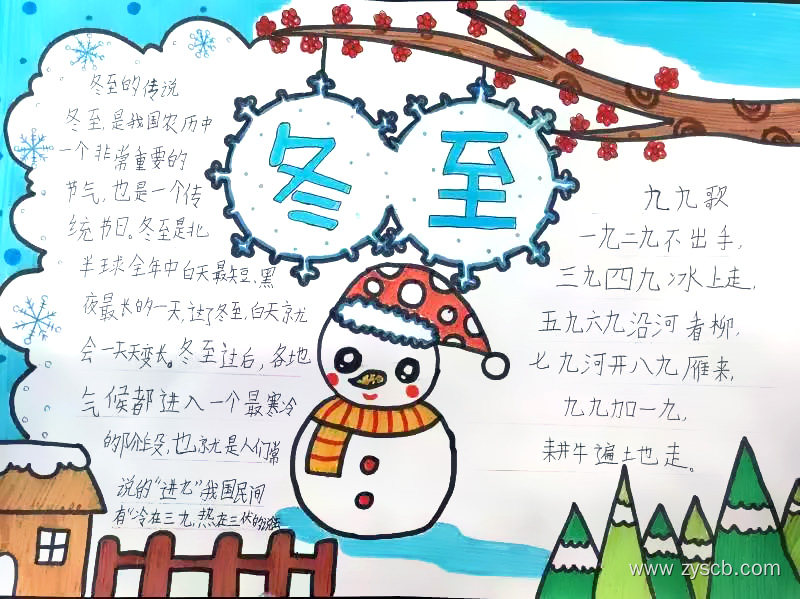 冬至
冬至的传说
冬至,是我国农历中
一个非常重要的
节气,也是一个传
统节日。冬至是北
半球全年中白天最短、黑
夜最长的一天,过了冬至,白天就
会一天天变长。冬至过后,各地
气候都进入一个最寒冷
的阶段,也就是人们常
说的"进九"我国民间
有"冷在三九,热在三伏的说法
九九歌
一九二九不出手,
三九四九冰上走,
五九六九沿河看柳,
七九河开八九雁来,
九九加一九,
耕牛遍地走。
www.zyscb.com